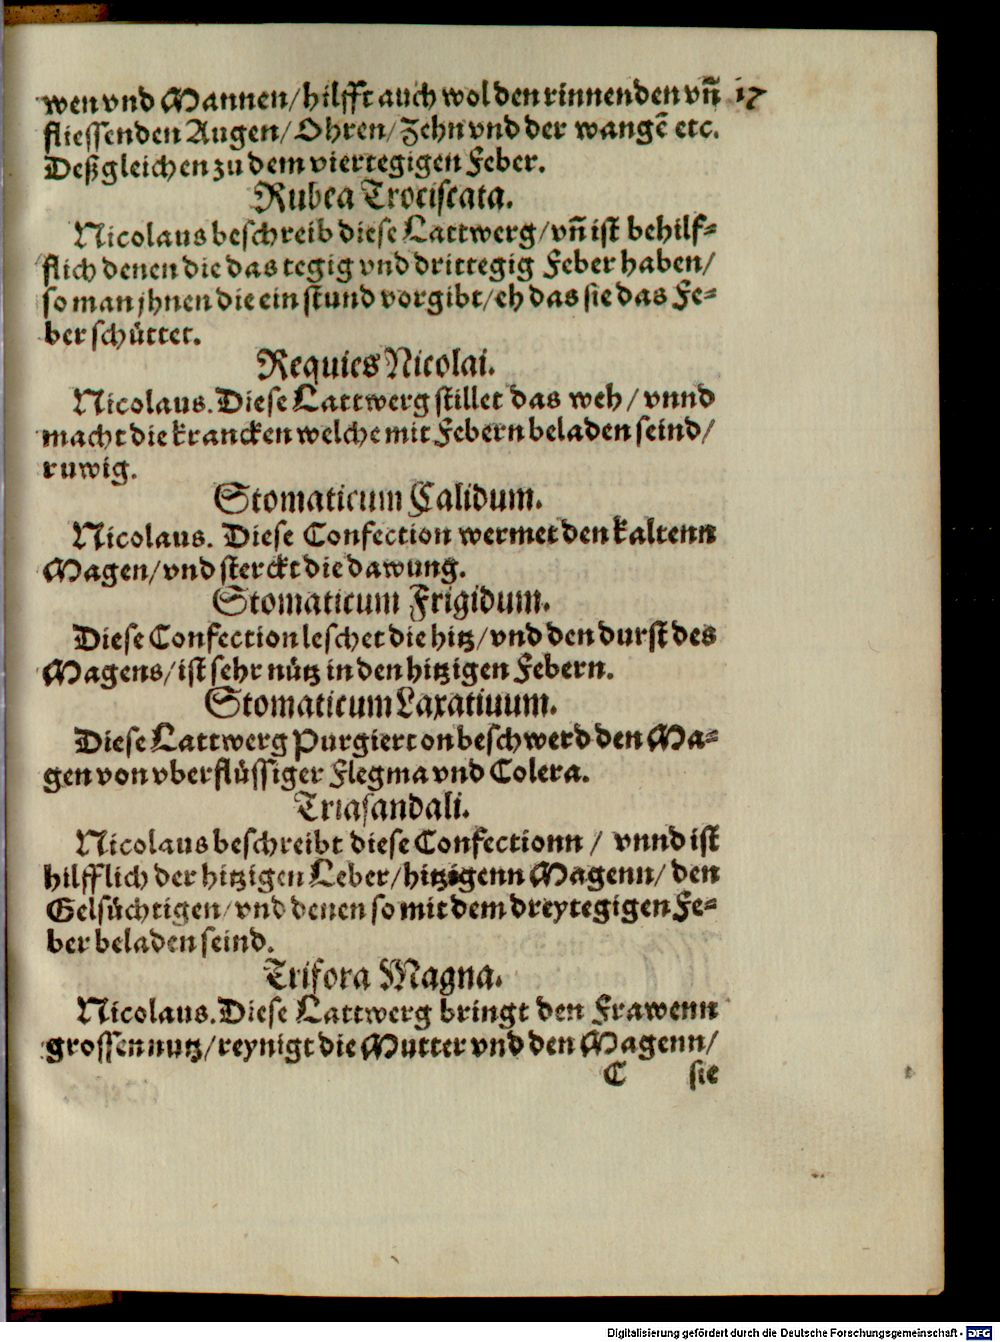 wen vnd Mannen/hilfft auch wol den rinnenden vñ 17
fliessenden Augen/Ohren/Zehn vnd der wangẽ etc.
Deßgleichen zu dem viertegigen Feber.
Rubea Trociscata.
Nicolaus beschreib diese Lattwerg/vñ ist behilf-
flich denen die das tegig vnd drittegig Feber haben/
so man jhnen die ein stund vorgibt/eh das sie das Fe-
ber schüttet.
Requies Nicolai.
Nicolaus. Diese Lattwerg stillet das weh/ vnnd
macht die krancken welche mit Febern beladen seind/
ruwig.
Stomaticum Calidum.
Nicolaus. Diese Confection wermet den kaltenn
Magen/vnd sterckt die dawung.
Stomaticum Frigidum.
Diese Confection leschet die hitz/vnd den durst des
Magens/ist sehr nütz in den hitzigen Febern.
Stomaticum Laxatiuum.
Diese Lattwerg Purgiert on beschwerd den Ma-
gen von vberflüssiger Flegma vnd Colera.
Triasandali.
Nicolaus beschreibt diese Confectionn / vnnd ist
hilfflich der hitzigen Leber/hitzigenn Magenn/ den
Gelsüchtigen/vnd denen so mit dem dreytegigen Fe-
ber beladen seind.
Trifora Magna.
Nicolaus. Diese Lattwerg bringt den Frawenn
grossen nutz/reynigt die Mutter vnd den Magenn/
C sie
Digitalisierung gefördert durch die Deutsche Forschungsgemeinschaft - DFG